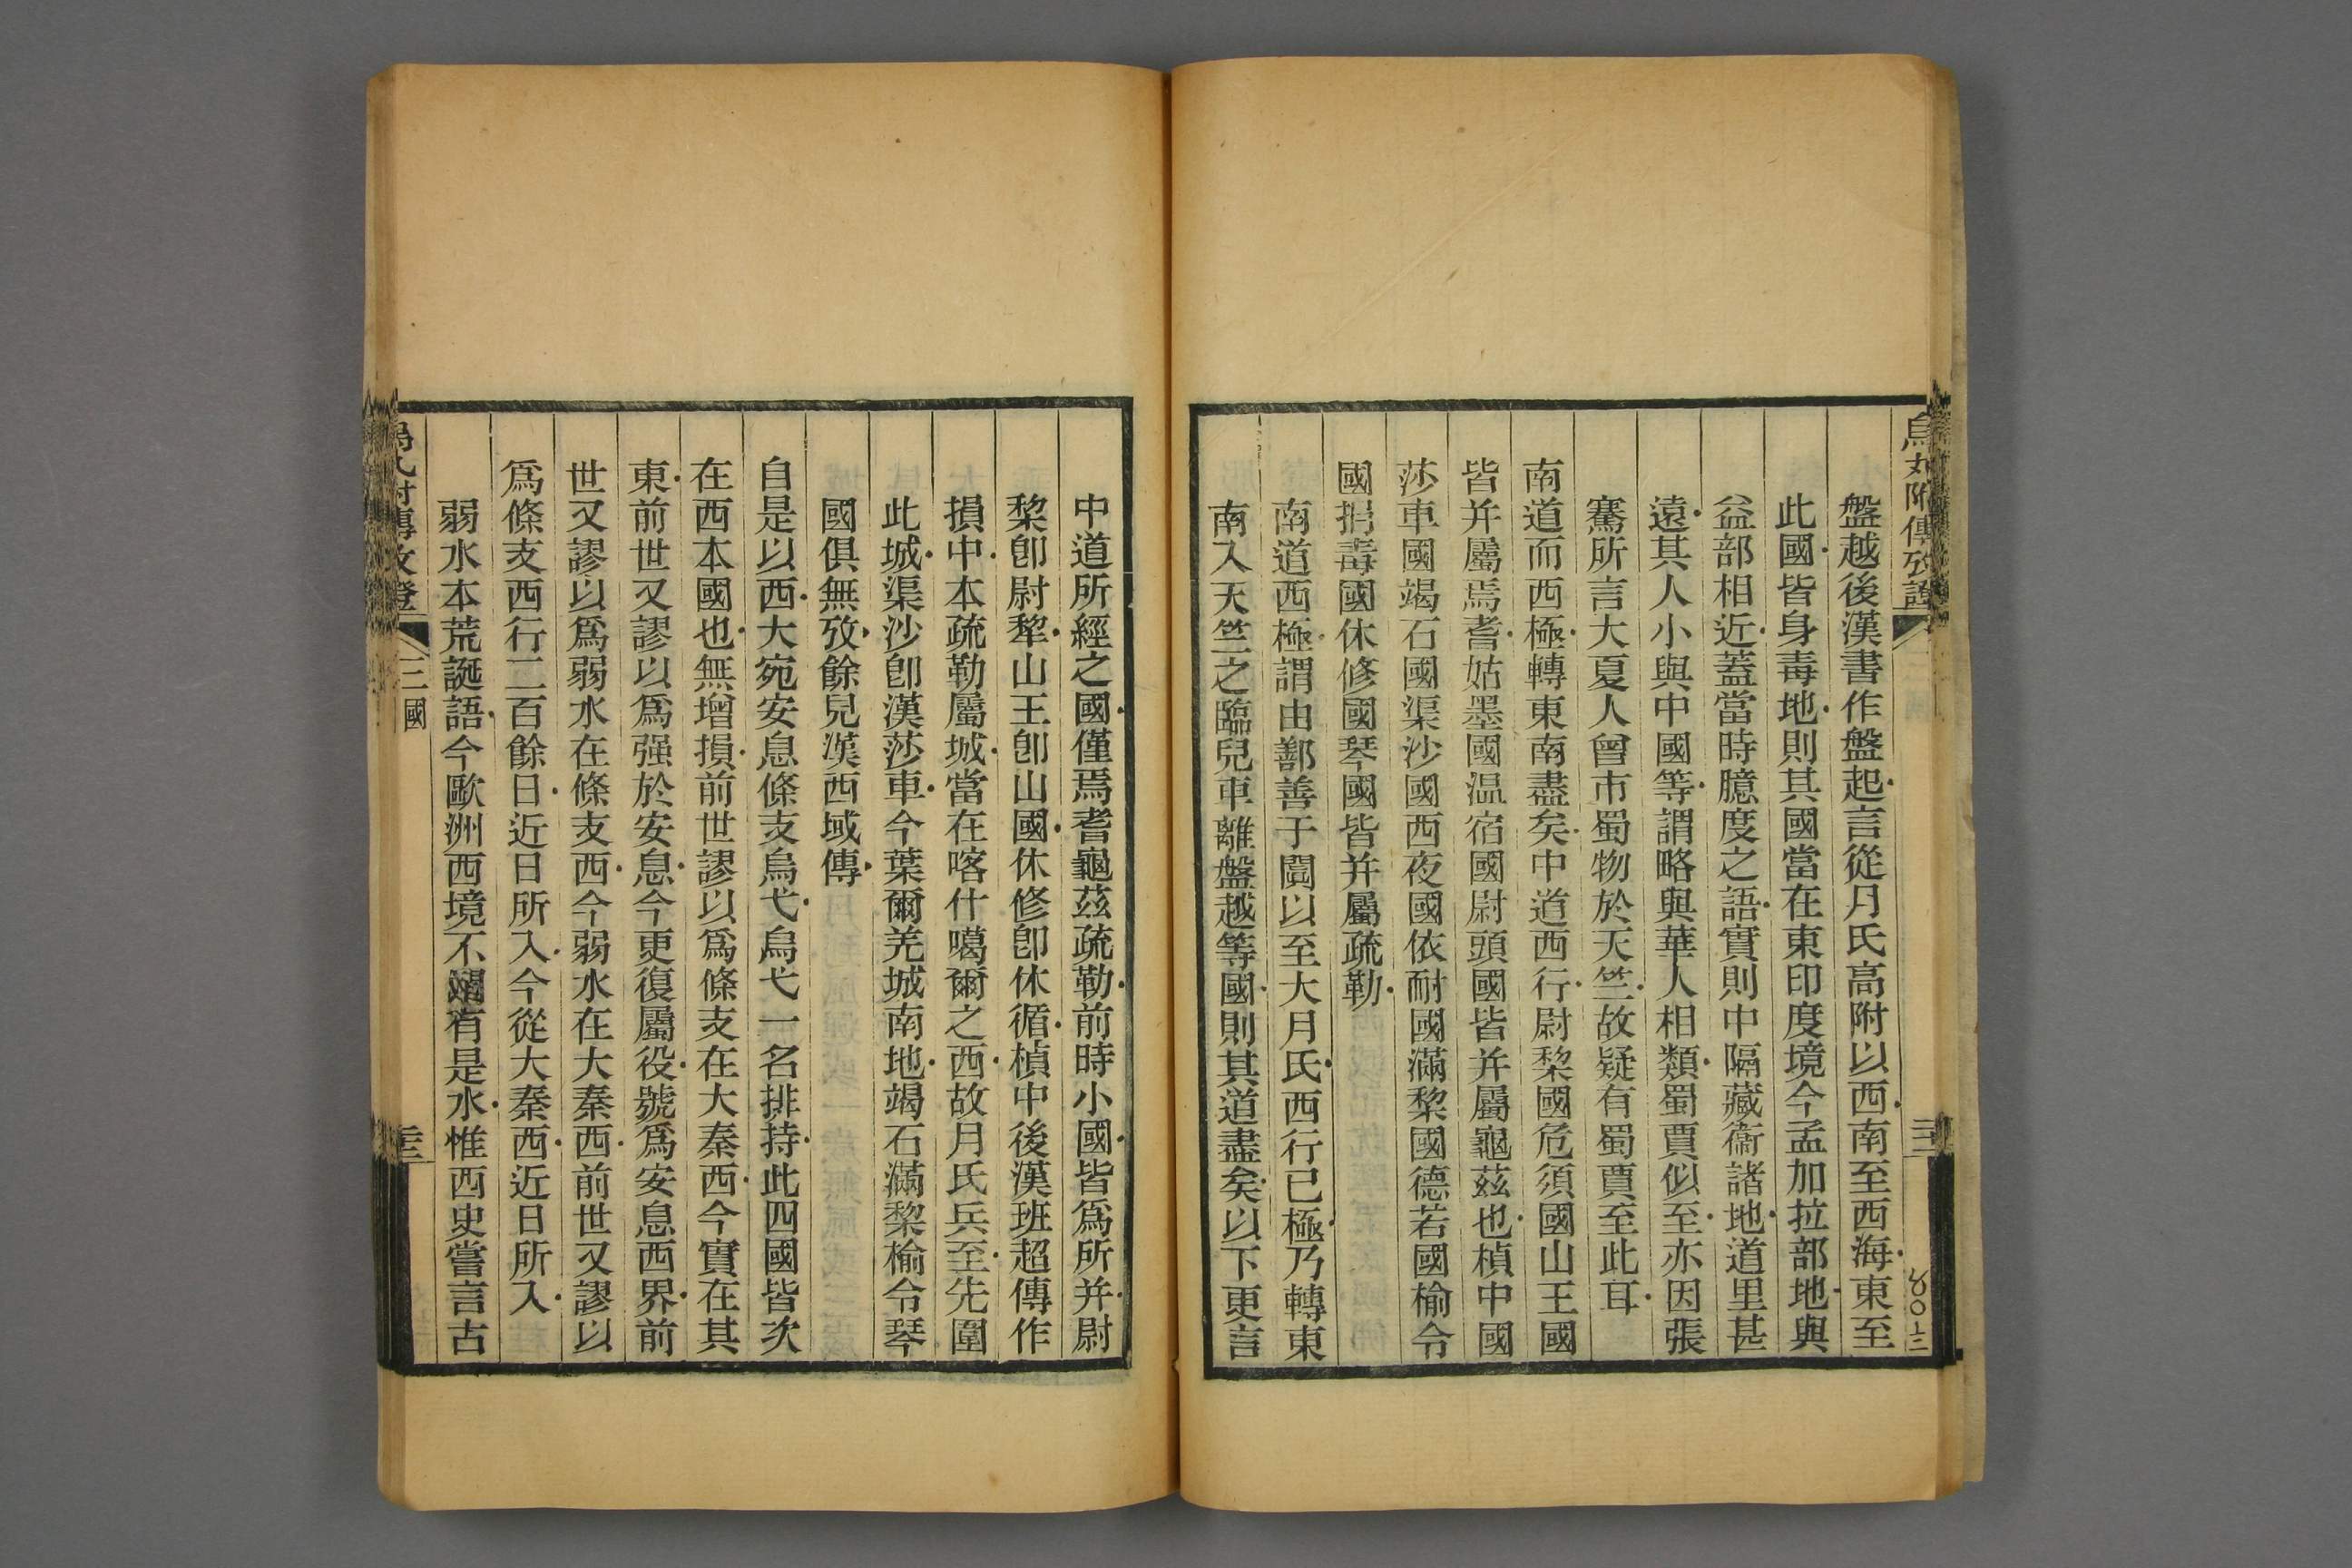 烏丸附傳攷證
盤越後漢書作盤起言從月氏高附以西南至西海東至
此國皆身毒地則其國當在東印度境今孟加拉部地與
益部相近蓋當時臆度之語實則中隔藏衞諸地道里甚
遠其人小與中國等謂略與華人相類蜀賈似至亦因張
騫所言大夏人曾市蜀物於天竺故疑有蜀賈至此耳
南道而西極轉東南盡矣中道西行尉棃國危須國山王國
皆并屬焉耆姑墨國温宿國尉頭國皆并屬龜茲也楨中國
莎車國竭石國渠沙國西夜國依耐國滿犂國德若國榆令
國捐毒國休修國琴國皆并屬疏勒
南道西極謂由鄯善于闐以至大月氏西行已極乃轉東
南入天竺之臨兒車離盤越等國則其道盡矣以下更言
中道所經之國僅焉耆龜茲疏勒前時小國皆爲所并尉
棃卽尉犂山王卽山國休修卽休循楨中後漢班超傳作
損中本疏勒屬城當在喀什噶爾之西故月氏兵至先圍
此城渠沙卽漢莎車今葉爾羌城南地竭石滿犂榆令琴
國俱無攷餘見漢西域傳
自是以西大宛安息條支烏弋烏弋一名排持此四國皆次
在西本國也無增損前世謬以爲條支在大秦西今實在其
東前世又謬以爲强於安息今更復屬役號爲安息西界前
世又謬以爲弱水在條支西今弱水在大秦西前世又謬以
爲條支西行二百餘日近日所入今從大秦西近日所入
弱水本荒誕語今歐洲西境不聞有是水惟西史嘗言古
三國